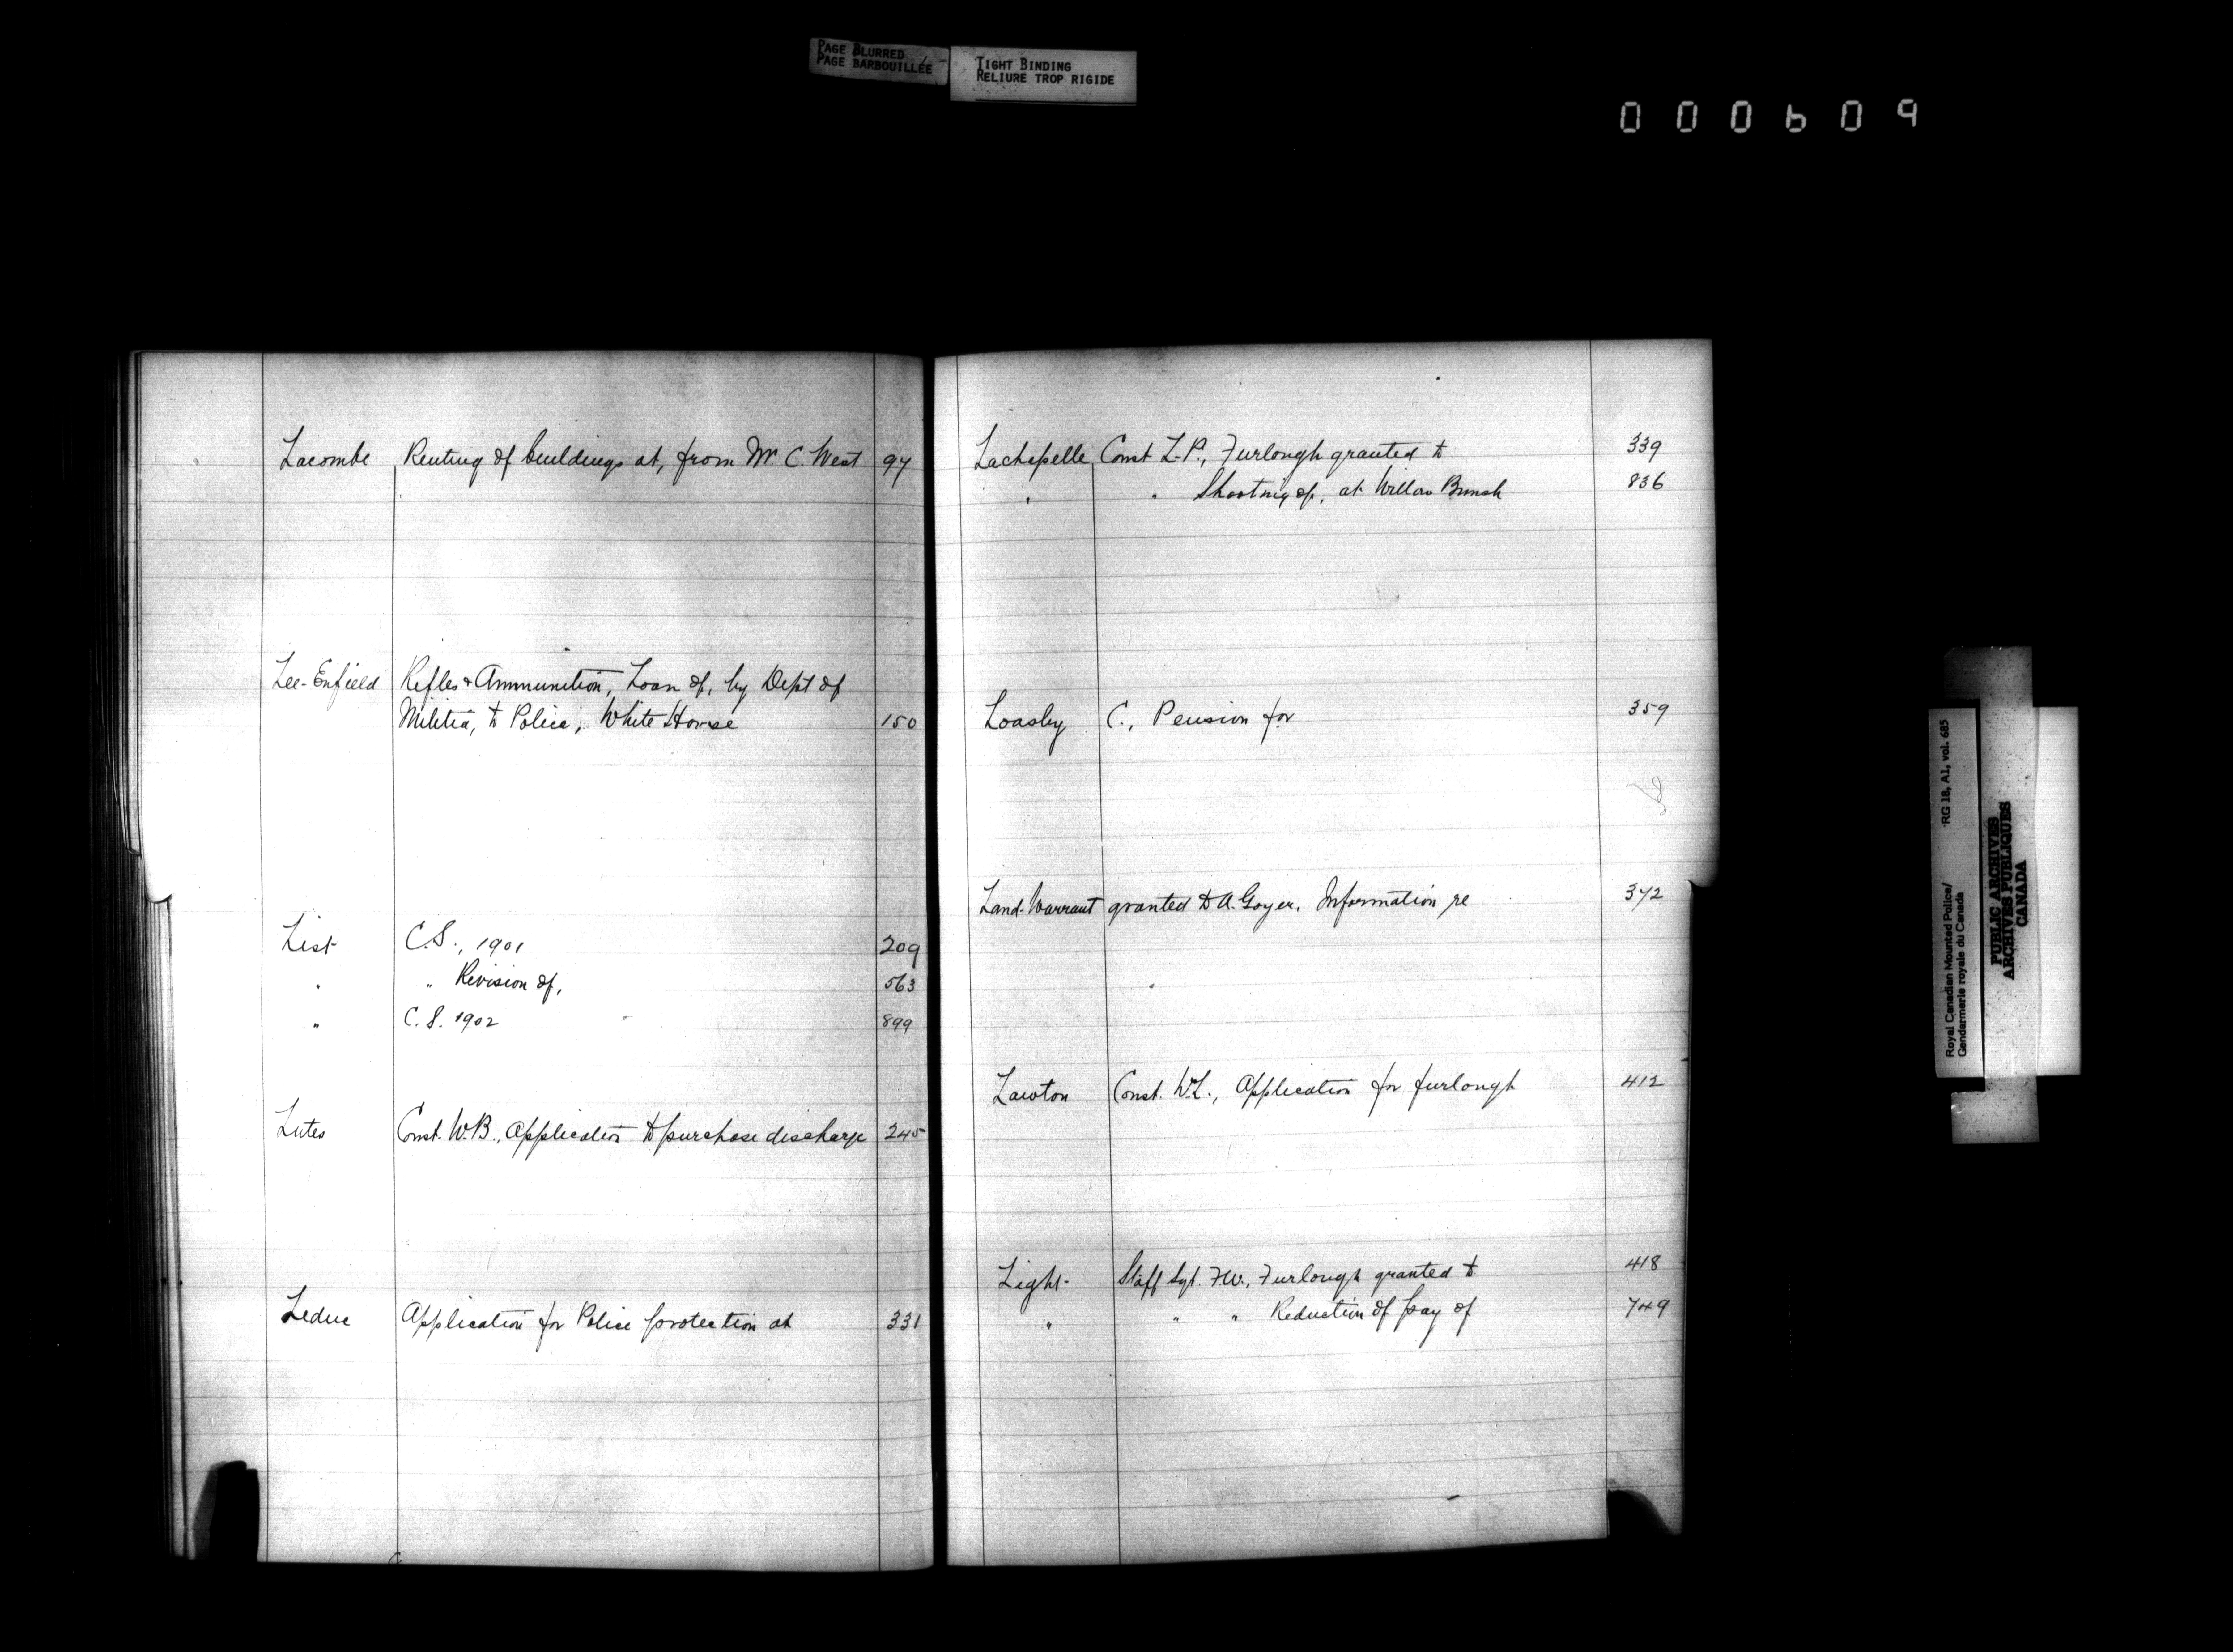 PAGE BLURRED
PAGE BARBOUILLÉE
TIGHT BINDING
RELIURE TROP RIGIDE
000609
Lacombe Renting of buildings at, from W. C. West 97
Lee-Enfield Rifles & Ammunition, Loan of, by Dept of
Militia, to Police, White Horse 150
List C.S., 1901 209
" " Revision of, 563
" C.S. 1902 899
Lutes Const. W.B., Application to purchase discharge 245
Leduc Application for Police protection at 331
Lachapelle Const L.P., Furlough granted to 339
" " Shooting of, at Willow Bunch 836
Loasby C., Pension for 359
Land-Warrant granted to A. Goyer, Information re 372
Lawton Const. W.L., Application for furlough 412
Light Staff Sgt. F.W., Furlough granted to 418
" " " Reduction of pay of 749
Royal Canadian Mounted Police/ RG 18, A1, vol. 685
Gendarmerie royale du Canada
PUBLIC ARCHIVES
ARCHIVES PUBLIQUES
CANADA